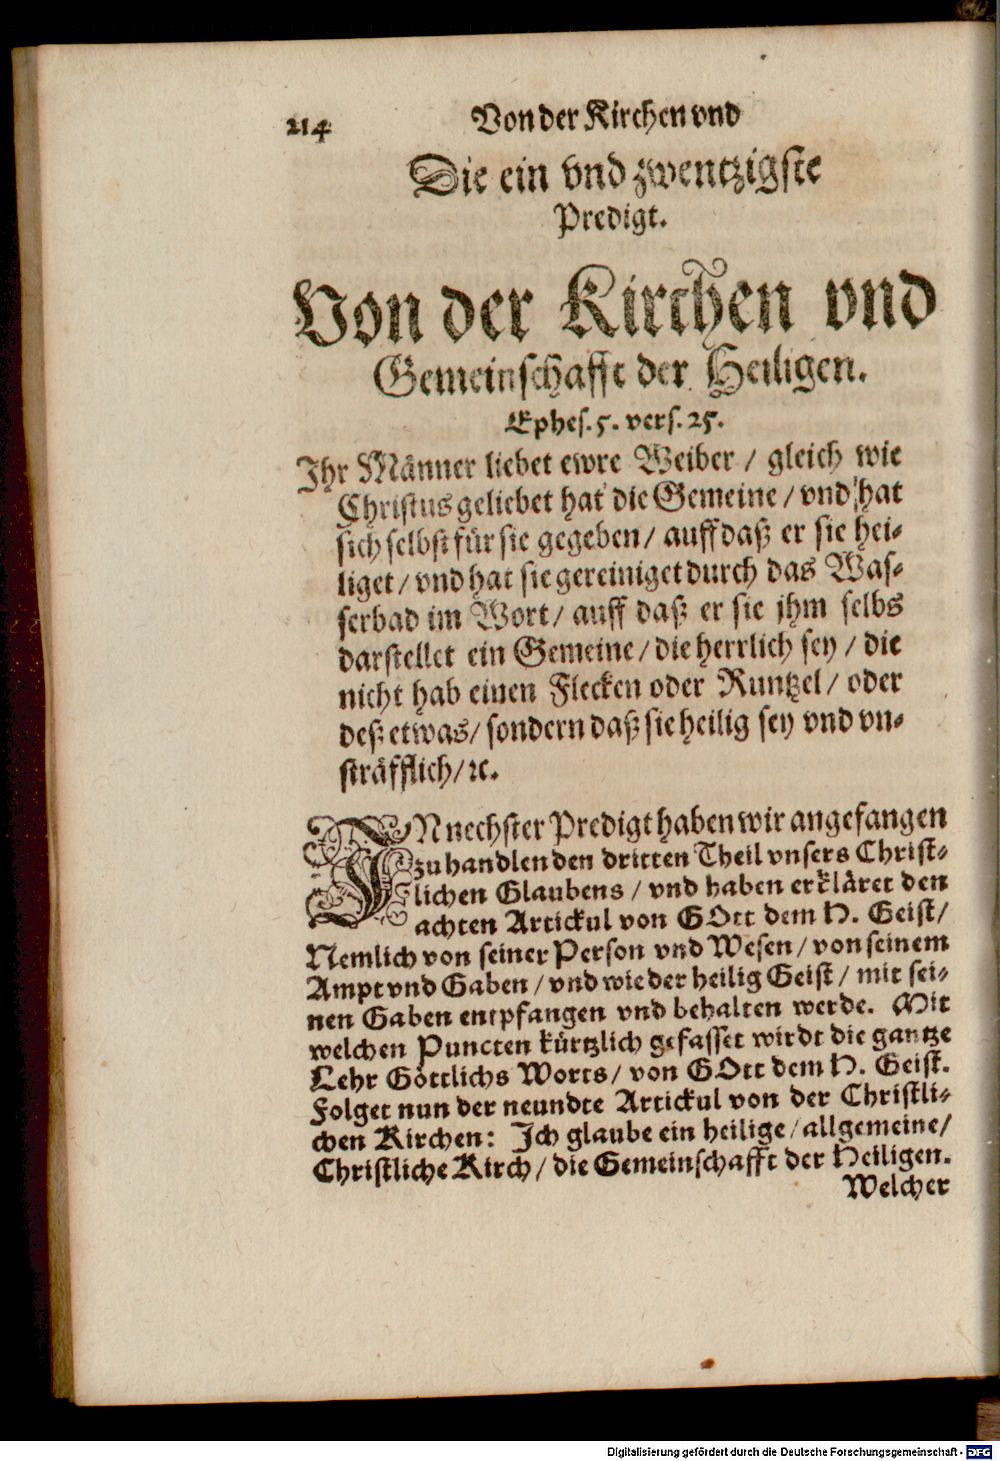 214 Von der Kirchen vnd
Die ein vnd zwentzigste
Predigt.
Von der Kirchen vnd
Gemeinschafft der Heiligen.
Ephes. 5. vers. 25.
Ihr Männer liebet ewre Weiber / gleich wie
Christus geliebet hat die Gemeine / vnd hat
sich selbst für sie gegeben / auff daß er sie hei-
liget / vnd hat sie gereiniget durch das Was-
serbad im Wort / auff daß er sie jhm selbs
darstellet ein Gemeine / die herrlich sey / die
nicht hab einen Flecken oder Runtzel / oder
deß etwas / sondern daß sie heilig sey vnd vn-
sträfflich / ꝛc.
IN nechster Predigt haben wir angefangen
zu handlen den dritten Theil vnsers Christ-
lichen Glaubens / vnd haben erkläret den
achten Artickul von GOtt dem H. Geist /
Nemlich von seiner Person vnd Wesen / von seinem
Ampt vnd Gaben / vnd wie der heilig Geist / mit sei-
nen Gaben entpfangen vnd behalten werde. Mit
welchen Puncten kürtzlich gefasset wirdt die gantze
Lehr Göttlichs Worts / von GOtt dem H. Geist.
Folget nun der neundte Artickul von der Christli-
chen Kirchen: Ich glaube ein heilige / allgemeine /
Christliche Kirch / die Gemeinschafft der Heiligen.
Welcher
Digitalisierung gefördert durch die Deutsche Forschungsgemeinschaft - DFG